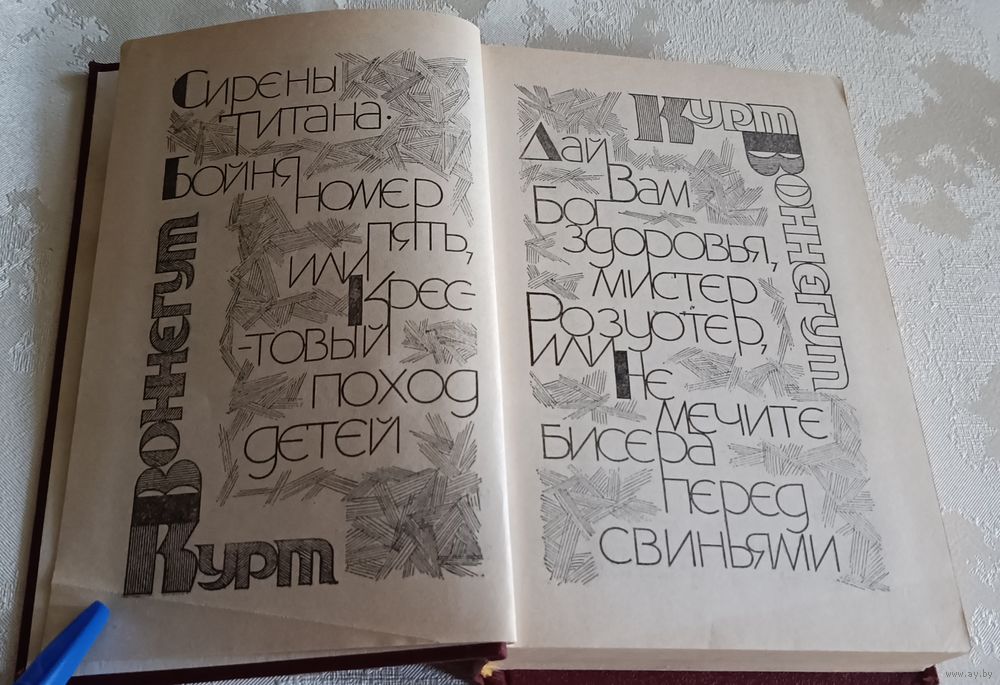 Сирены
титана.
Бойня
номер
пять,
или
Крес-
-товый
поход
детей
Курт
Воннегут
Курт
Воннегут
Дай
Вам
Бог
здоровья,
мистер
Розуотер,
или
Не
мечите
бисера
перед
свиньями
www.ay.by